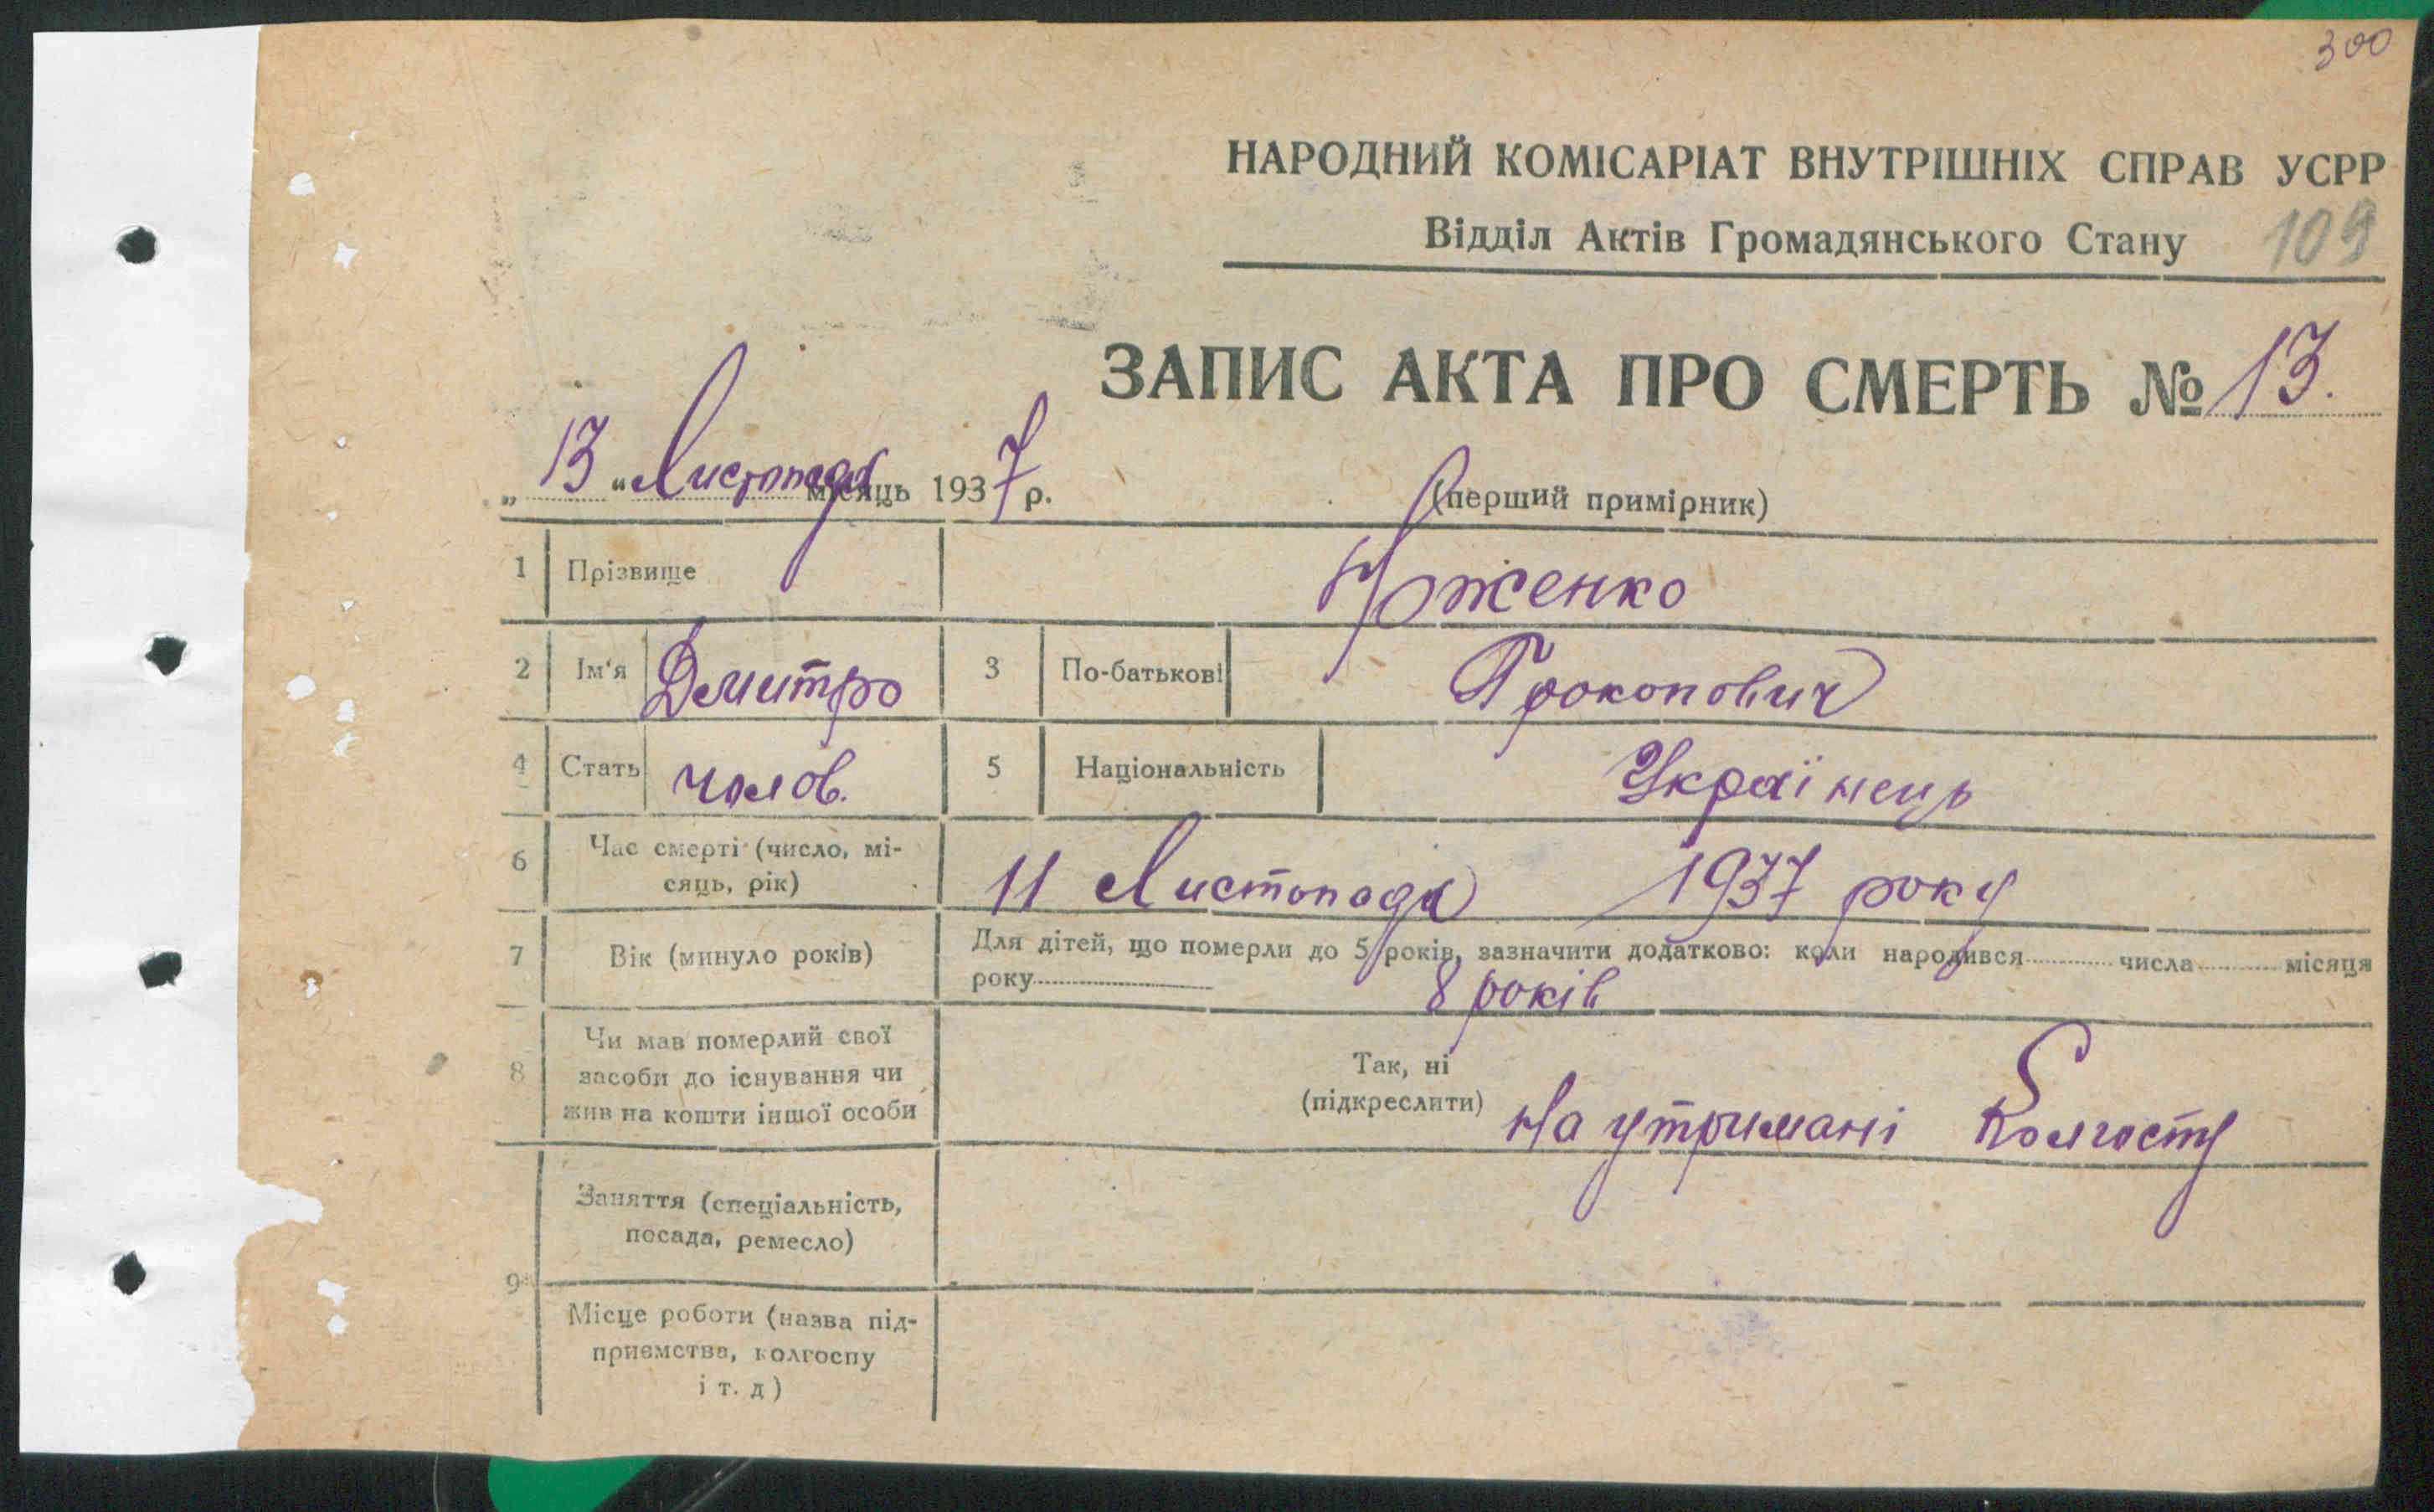 300
НАРОДНИЙ КОМІСАРІАТ ВНУТРІШНІХ СПРАВ УСРР
Відділ Актів Громадянського Стану 109
ЗАПИС АКТА ПРО СМЕРТЬ № 13.
„ 13 " Листопада місяць 1937 р.
(перший примірник)
1 Прізвище
2 Ім'я Демитро 3 По-батькові Прокопович
4 Стать чолов. 5 Національність Українець
6 Час смерті (число, мі-
сяць, рік) 11 Листопада 1937 року
7 Вік (минуло років) Для дітей, що померли до 5 років, зазначити додатково: коли народився числа місяця
року 8 років
8 Чи мав померлий свої
засоби до існування чи
жив на кошти іншої особи
Так, ні
(підкреслити) На утримані Колгоспу
9 Заняття (спеціальність,
посада, ремесло)
Місце роботи (назва під-
приємства, колгоспу
і т. д)